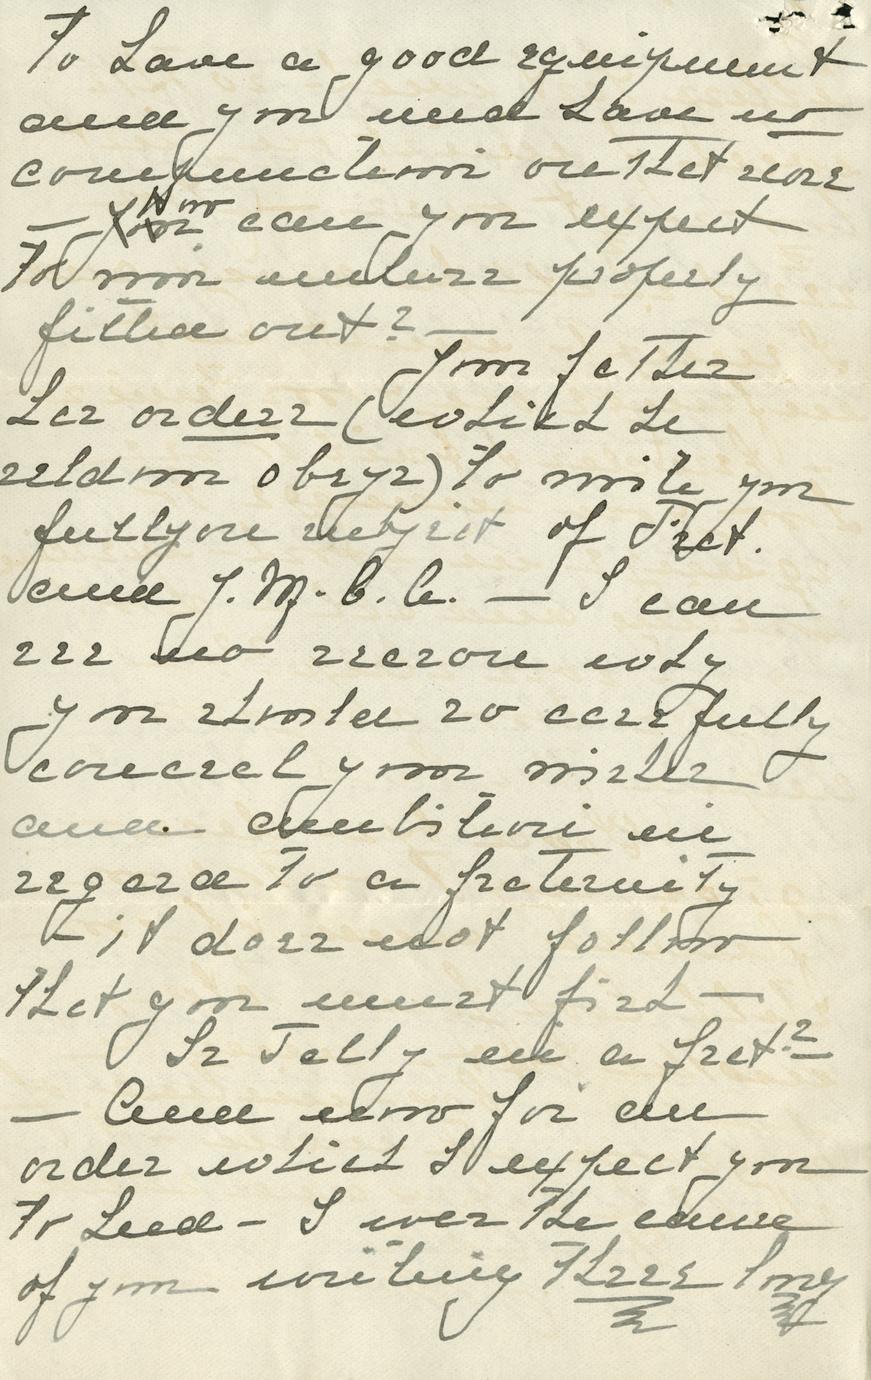 To have a good equipment
and you need have no
compunction on that score
— How can you expect
to win unless properly
fitted out? —
Your father
has orders (which he
seldom obeys) to write you
fully on subject of Frat.
and Y.M.C.A. — I can
see no reason why
you should so carefully
conceal your wishes
and ambition in
regard to a fraternity
— it does not follow
that you must fish —
Is Tally in a frat?
— And now for an
order which I expect you
to heed — I was the cause
of your writing three long